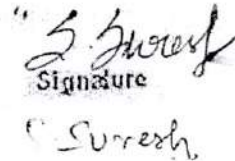 S. Suresh
Signature
S. Suresh